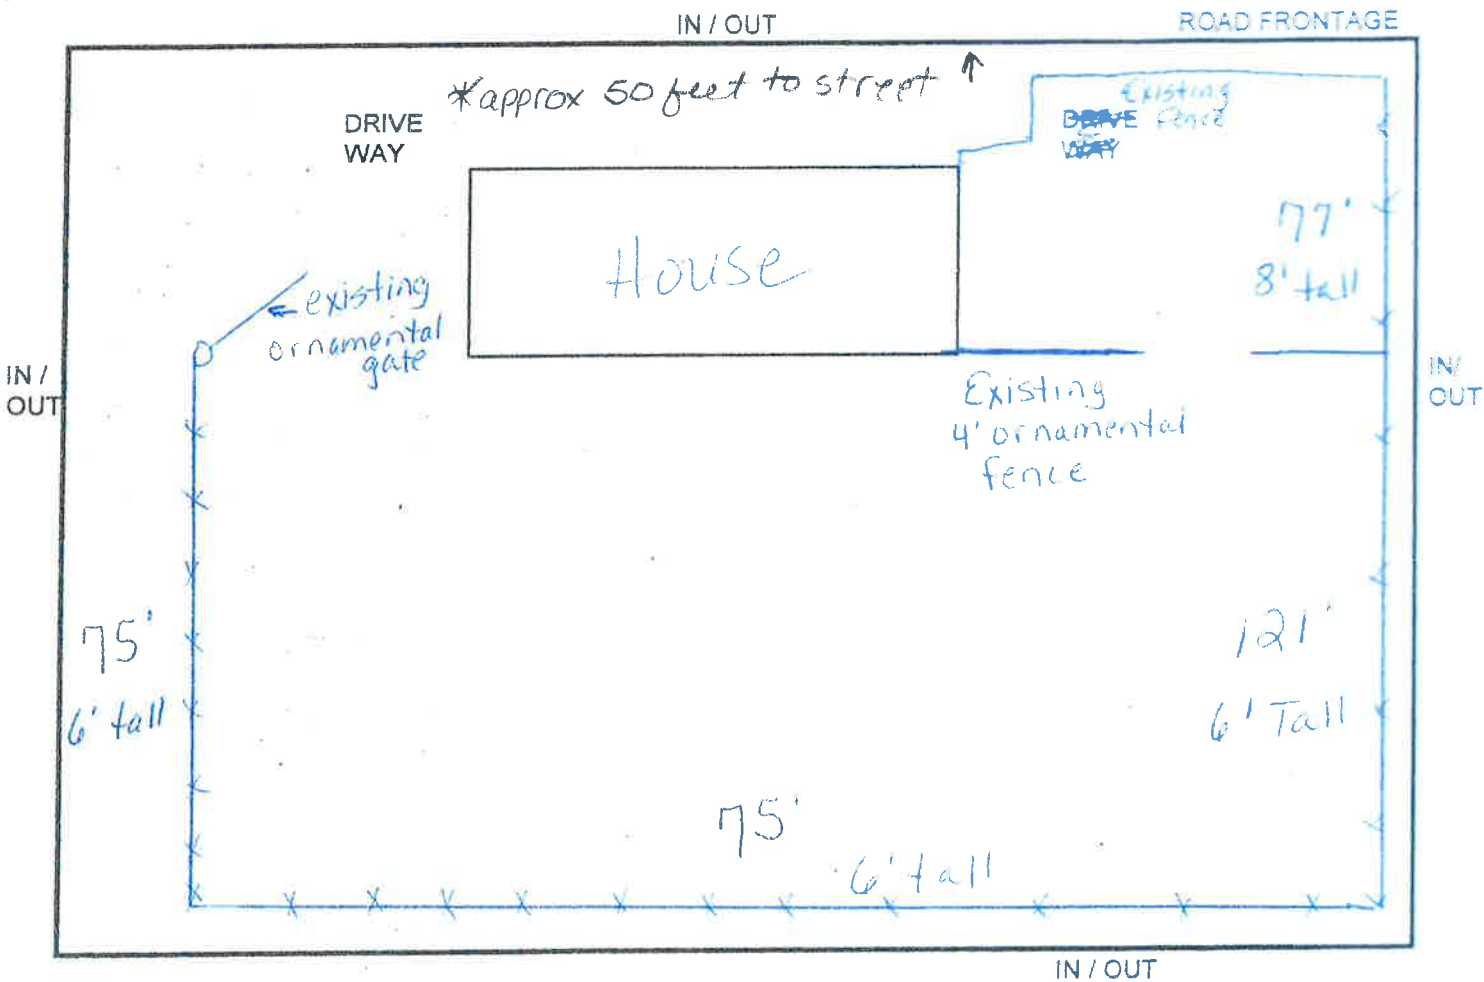 IN / OUT
ROAD FRONTAGE
*approx 50 feet to street ↑
Existing
Fence
DRIVE
WAY
DRIVE
WAY
House
77'
8' tall
existing
ornamental
gate
IN /
OUT
IN/
OUT
Existing
4' ornamental
fence
75'
6' tall
121'
6' Tall
75'
6' tall
IN / OUT